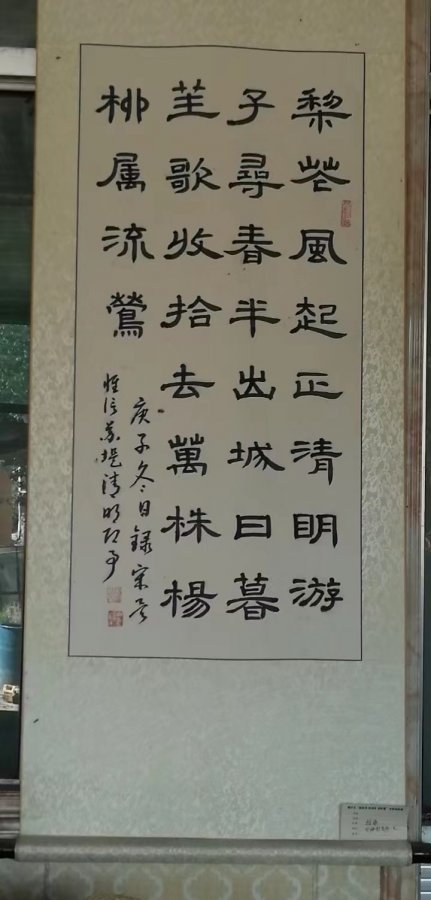 梨花風起正清明游
子尋春半出城日暮
笙歌收拾去萬株楊
柳属流鶯
庚子冬日録宋吴
惟信蘇堤清明即事